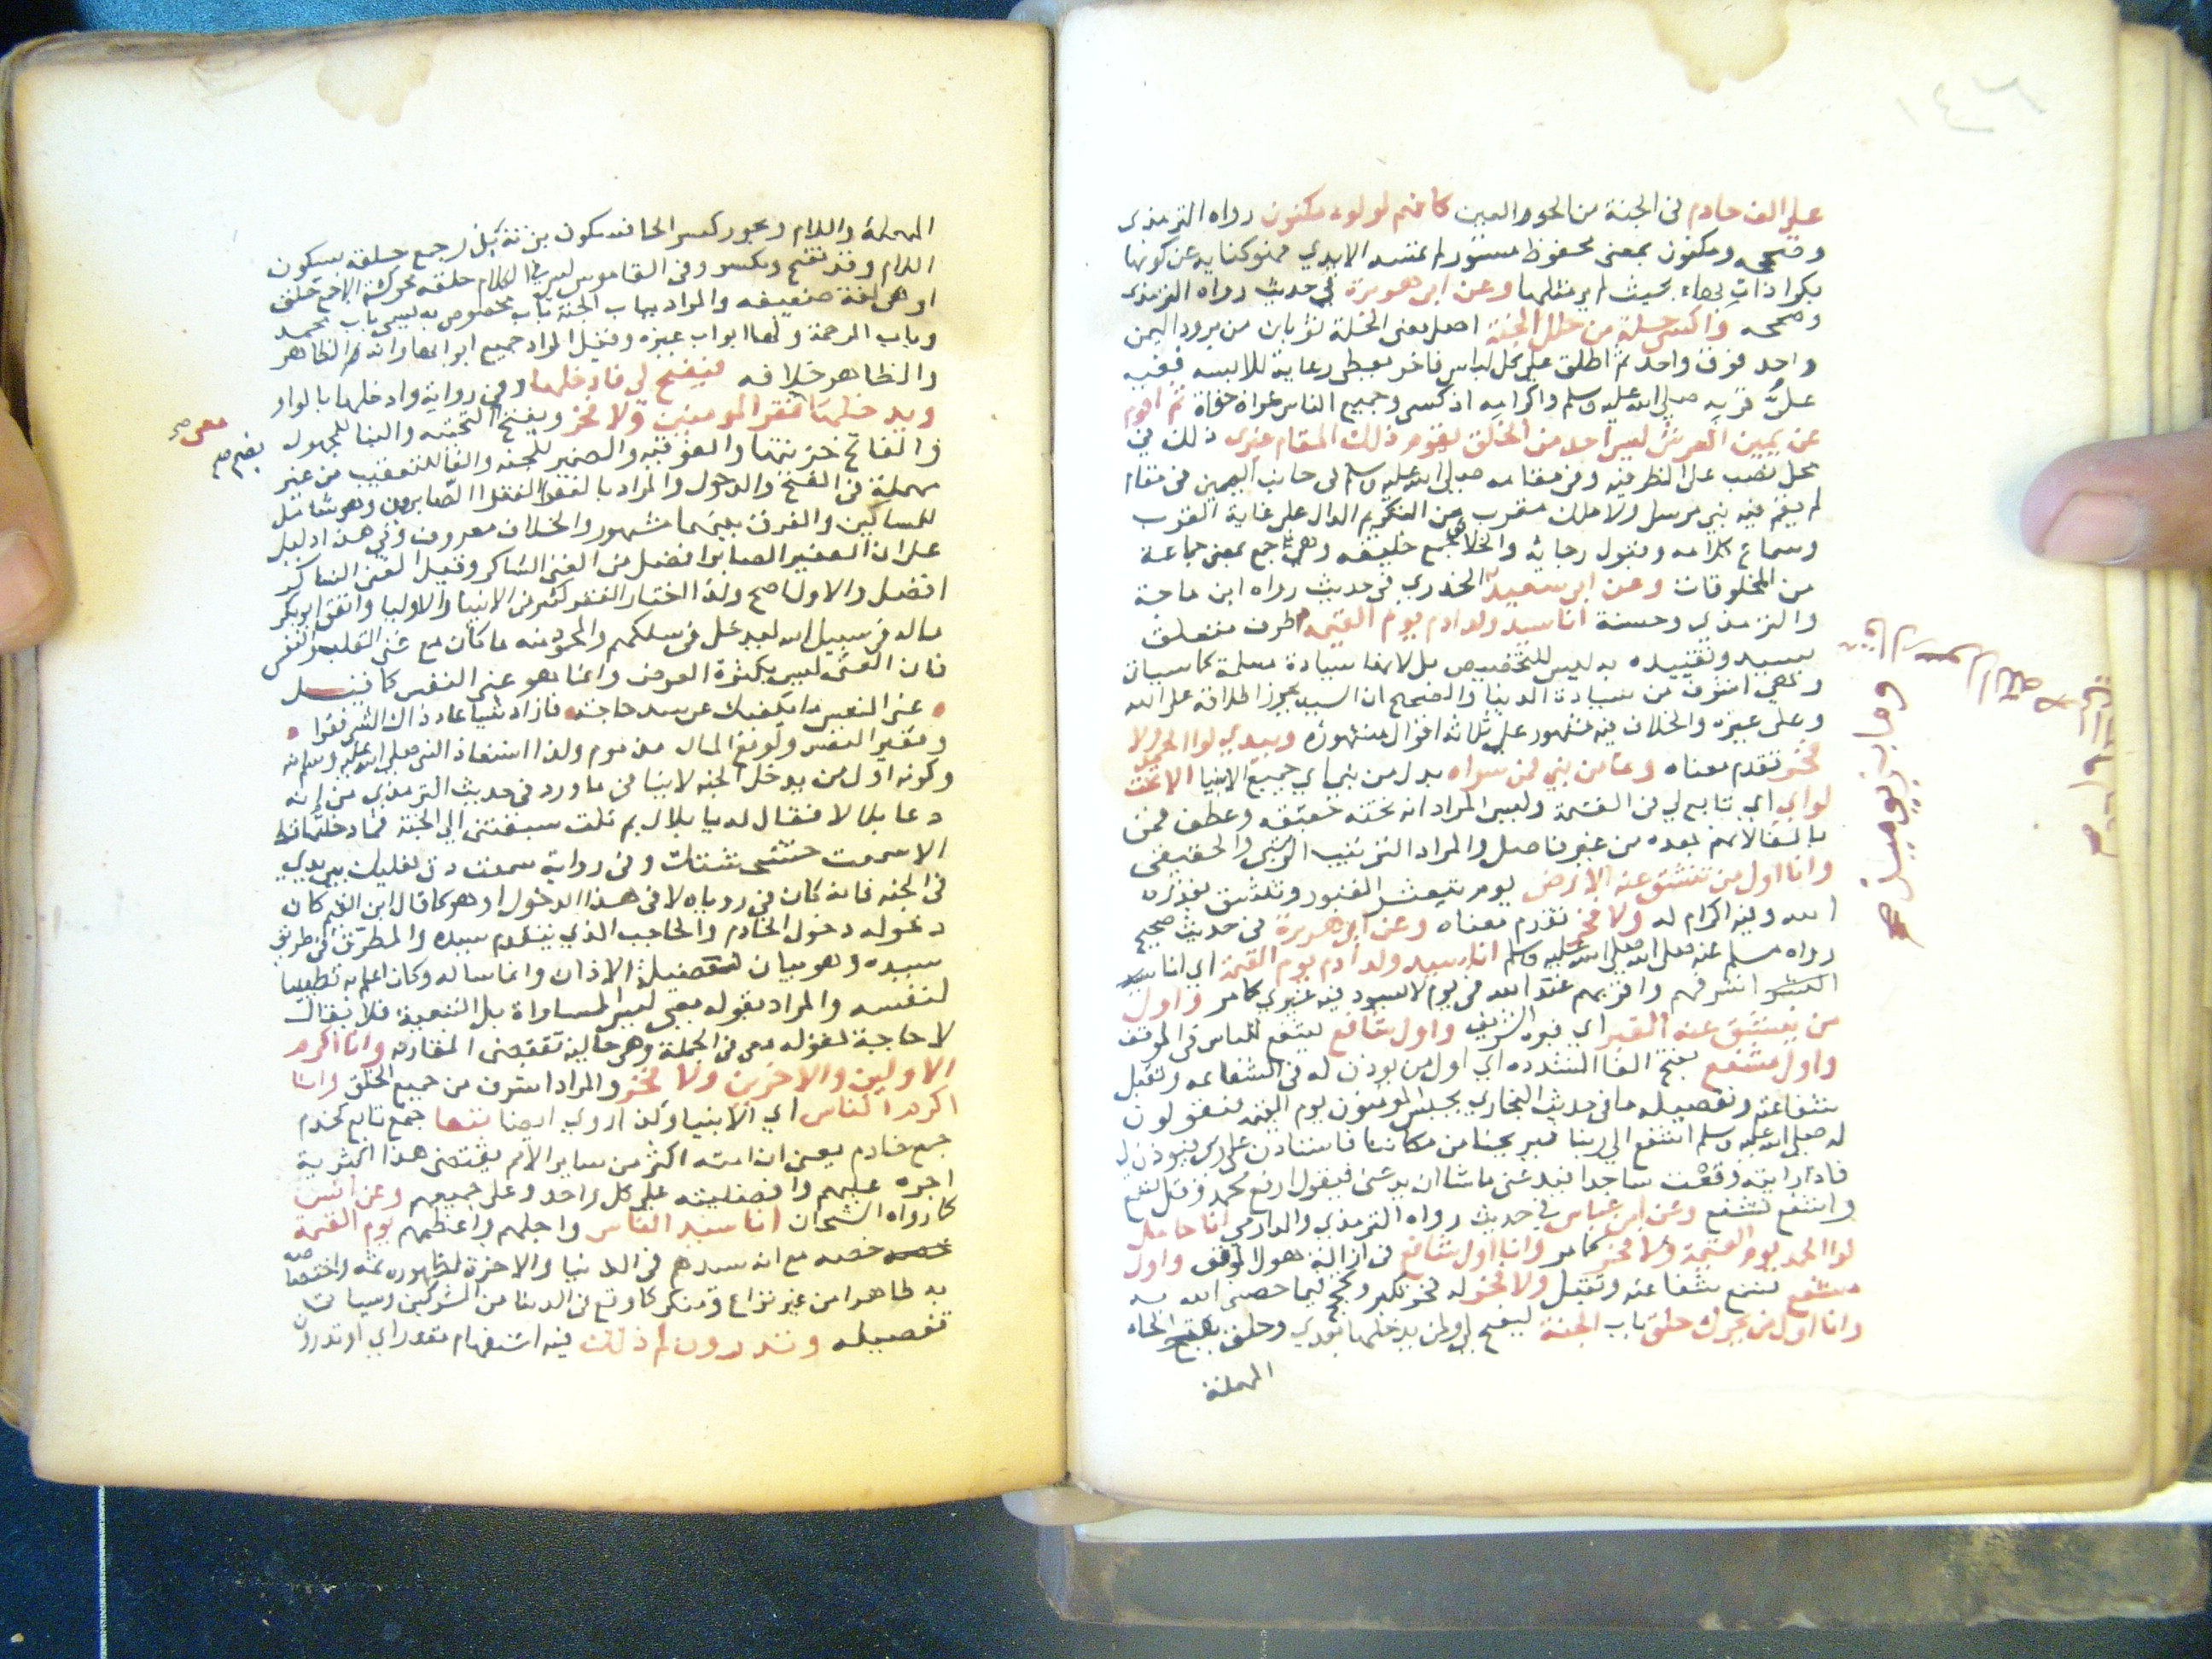 ١٤٦
على الف خادم فى الجنة من الحور العين كانهم لولوء مكنون رواه الترمذى
وصححه ومكنون بمعنى محفوظ مستور لم تمسه الايدي فهو كناية عن كونها
بكرا ذات بحيث لم ير مثلها وعن ابى هريرة في حديث رواه الترمذى
وصححه واكسى حلة من حلل الجنة اصل معنى الحلة ثوبان من برود اليمن
واحد فوق واحد ثم اطلق على كل لباس فاخر يعطى رعاية للابسه ففيه
علو قربه صلى الله عليه وسلم واكرامه اذ كسى وجميع الناس عراة حفاة ثم اقوم
عن يمين العرش ليس احد من الخلق يقوم ذلك المقام غيرى ذلك في
محل نصب على الظرفيه وفى مقامه صلى الله عليه وسلم فى جانب اليمين فى مقام
لم يقم فيه نبي مرسل ولا ملك مقرب من التكريم الدال على غاية القرب
وسماع كلامه وقبول رجائه والخلائق جمع خليقه وهى جمع بمعنى جماعة
من المخلوقات وعن ابى سعيد الخدري فى حديث رواه ابن ماجة
والترمذي وحسنة انا سيد ولد ادم يوم القيمة ظرف متعلق
بسيد وتقييده به ليس للتخصيص بل لانها سيادة مسلمة كما سياتى
وهي اشرف من سيادة الدنيا والصحيح ان السيد يجوز اطلاقه على الله
وعلى غيره والخلاف فيه مشهور على ثلاثة اقوال مشهورة وبيدي لوا الحمد ولا
فخر تقدم معناه وما من نبي فمن سواه بدل من نبي اي جميع الانبيا الا تحت
لواي اي تابع لي فى القيمة وليس المراد انه تحته حقيقه وعطف فمن
بالفا لانهم بعده من غير فاصل والمراد الترتيب الرتبي والحقيقى
وانا اول من تنشق عنه الارض يوم تبعث القبور وتنشق بقدرة
الله وفيه اكرام له ولا فخر تقدم معناه وعن ابى هريرة فى حديث صحيح
رواه مسلم عنه صلى الله عليه وسلم انا سيد ولد ادم يوم القيمة اي انا سيد
البشر اشرفهم واقربهم عند الله فى يوم لا يسود فيه غيري كما مر واول
من ينشق عنه القبر اي قبره الشريف واول شافع يشفع للناس فى الموقف
واول مشفع بفتح الفا المشدده اي اول من يوذن له فى الشفاعه وتقبل
شفاعته وتفصيله ما فى حديث البخاري يحبس المومنون يوم القيمه فيقولون
له صلى الله عليه وسلم اشفع الى ربنا فيريحنا من مكاننا فاستاذن على ربى فيوذن لى
فاذا رايته وقعت ساجدا فيدعنى ما شا ان يدعنى فيقول ارفع محمد وقل تسمع
واشفع تشفع وعن ابن عباس في حديث رواه الترمذي والدارمي انا حامل
لوا الحمد يوم القيمة ولا فخر كما مر وانا اول شافع فى ازالة هول الموقف واول
مشفع تسمع شفاعته وتقبل ولا فخر له فخر تكبر وتبجح بما خصنى الله به
وانا اول من يحرك حلق باب الجنة ليفتح لى ولمن يدخلها بعدي وحلق بفتح الحاء
المهملة
المهملة واللام ويجوز كسر الحا فسكون بزنة كل جمع حلقه بسكون
اللام وقد تفتح وتكسر وفى القاموس ليس فى الكلام حلقه محركة الا جمع حالق
او هى لغة ضعيفه والمراد بباب الجنة باب مخصوص به ليس باب محمد
وباب الرحمة ولها ابواب غيره وقيل المراد جميع ابوابها وانه الظاهر
والظاهر خلافه فيفتح لي فادخلها وفى رواية وادخلها بالواو
ويدخلها فقرا المومنين ولا فخر ويفتح التحتيه والبنا للمجهول
معى صح
بضم صح
والفاتح خزنتها والفوقيه والضمير للجنه والفا للتعقيب من غير
مهملة فى الفتح والدخول والمراد بالفقرا الفقرا الصابرون وهو شامل
للمساكين والفرق بينهما مشهور والخلاف معروف وفي هذا دليل
على ان الفقير الصابر افضل من الغنى الشاكر وقيل الغنى الشاكر
افضل والاول اصح ولذا اختار الفقر كثير من الانبيا والاوليا وانفق ابو بكر
ماله فى سبيل الله ليدخل فى سلكهم والمحمود منه ما كان مع غنى القلب والنفس
فان الغنى ليس بكثرة العرض وانما هو غنى النفس كما قيل
غنى النفس ما يكفيك عن سد حاجة فان زاد شيا عاد ذاك الغنى فقرا
وفقير النفس ولو مع المال مذموم ولذا استعاذ النبى صلى الله عليه وسلم منه
وكونه اول من يدخل الجنه لا ينافى ما ورد فى حديث الترمذي من انه
دعا بلالا فقال له يا بلال بم سبقتنى الى الجنة فما دخلتها قط
الا سمعت خشخشتك وفى رواية سمعت دق نعليك بين يدي
فى الجنه فانه كان في روياه لا فى هذا الدخول او هو كما قال ابن القيم كان
دخوله دخول الخادم والحاجب الذي يتقدم سيده والمطرق فى طريق
سيده وهو بيان لفضيلة الاذان وانما ساله وكان اعلم به تطييبا
لنفسه والمراد بقوله معى ليس المساواة بل التبعية فلا يقال
لا حاجة لقوله معى فى الجملة وهى حالية تقتضى المقارنه وانا اكرم
الاولين والاخرين ولا فخر والمراد اشرف من جميع الخلق وانا
اكرم الناس اي الانبيا وكذا روي ايضا تبعا جمع تابع كخدم
جمع خادم يعنى ان امته اكثر من ساير الامم يقتضى هذا اكثرية
اجره عليهم وافضليته على كل واحد وعلى جميعهم وعن انس
كما رواه الشيخان انا سيد الناس واجلهم واعظمهم يوم القيمة
خصه مع انه سيدهم فى الدنيا والاخرة لظهوره ثمه واختصاصه
به ظاهرا من غير نزاع ومنكر كما وقع فى الدنيا من المشركين وسياتى
تفصيله وتدرون لم ذلك فيه استفهام مقدر اي اوتدرون